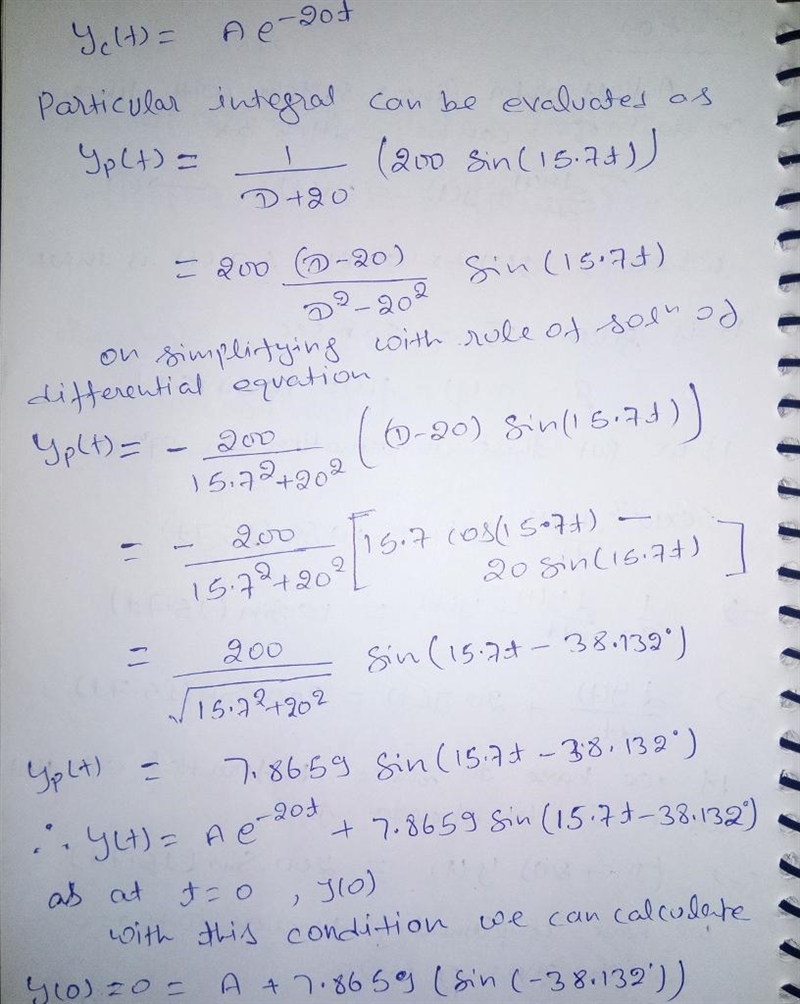 Yc(t) = A e^-20t
Particular integral can be evaluates as
Yp(t) = 1/(D+20) (200 sin(15.7t))
= 200 (D-20)/(D²-20²) sin(15.7t)
on simplifying with rule of solⁿ of
differential equation
Yp(t) = - 200/(15.7²+20²) ((D-20) sin(15.7t))
= - 200/(15.7²+20²) [15.7 cos(15.7t) -
20 sin(15.7t)]
= 200/√(15.7²+20²) sin(15.7t - 38.132°)
Yp(t) = 7.8659 sin(15.7t - 38.132°)
∴ y(t) = A e^-20t + 7.8659 sin(15.7t - 38.132°)
as at t=0 , y(0)
with this condition we can calculate
y(0)=0 = A + 7.8659 (sin(-38.132°))